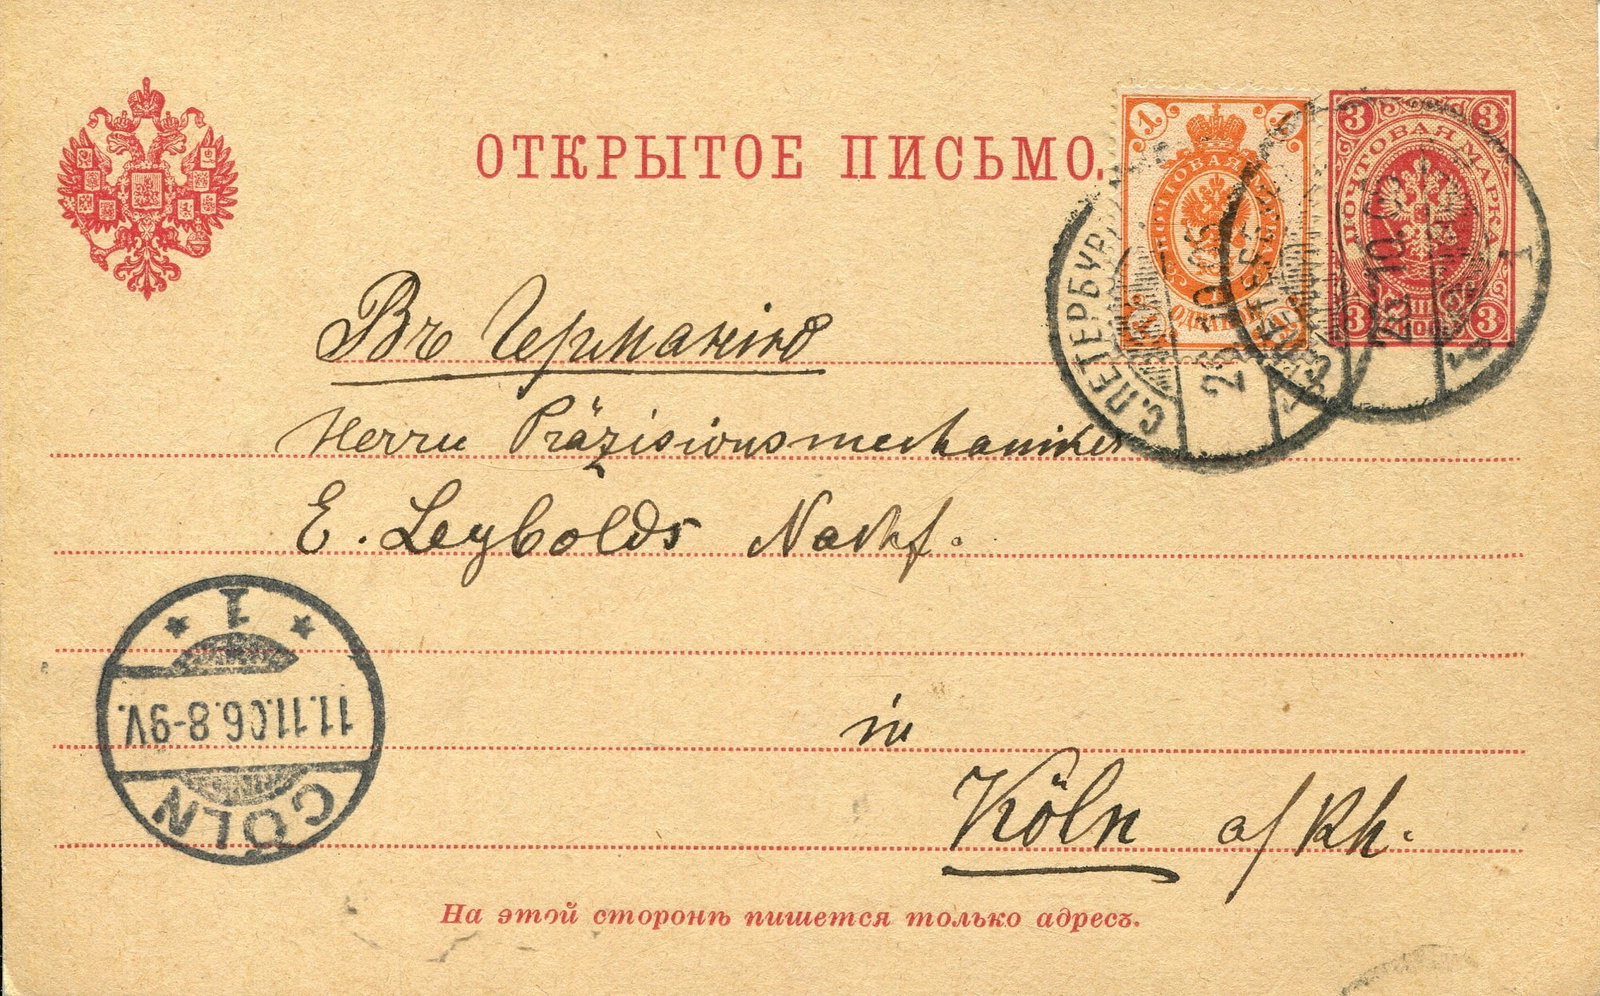 ОТКРЫТОЕ ПИСЬМО.
1 1
ПОЧТОВАЯ
3 3
ПОЧТОВАЯ МАРКА
3 3
С. ПЕТЕРБУРГ
Въ Германію
Herrn Präzisionsmechaniker
E. Leybolds Nachf.
1
11.11.06.8-9V.
CÖLN
in
Köln a/Rh.
На этой сторонѣ пишется только адресъ.